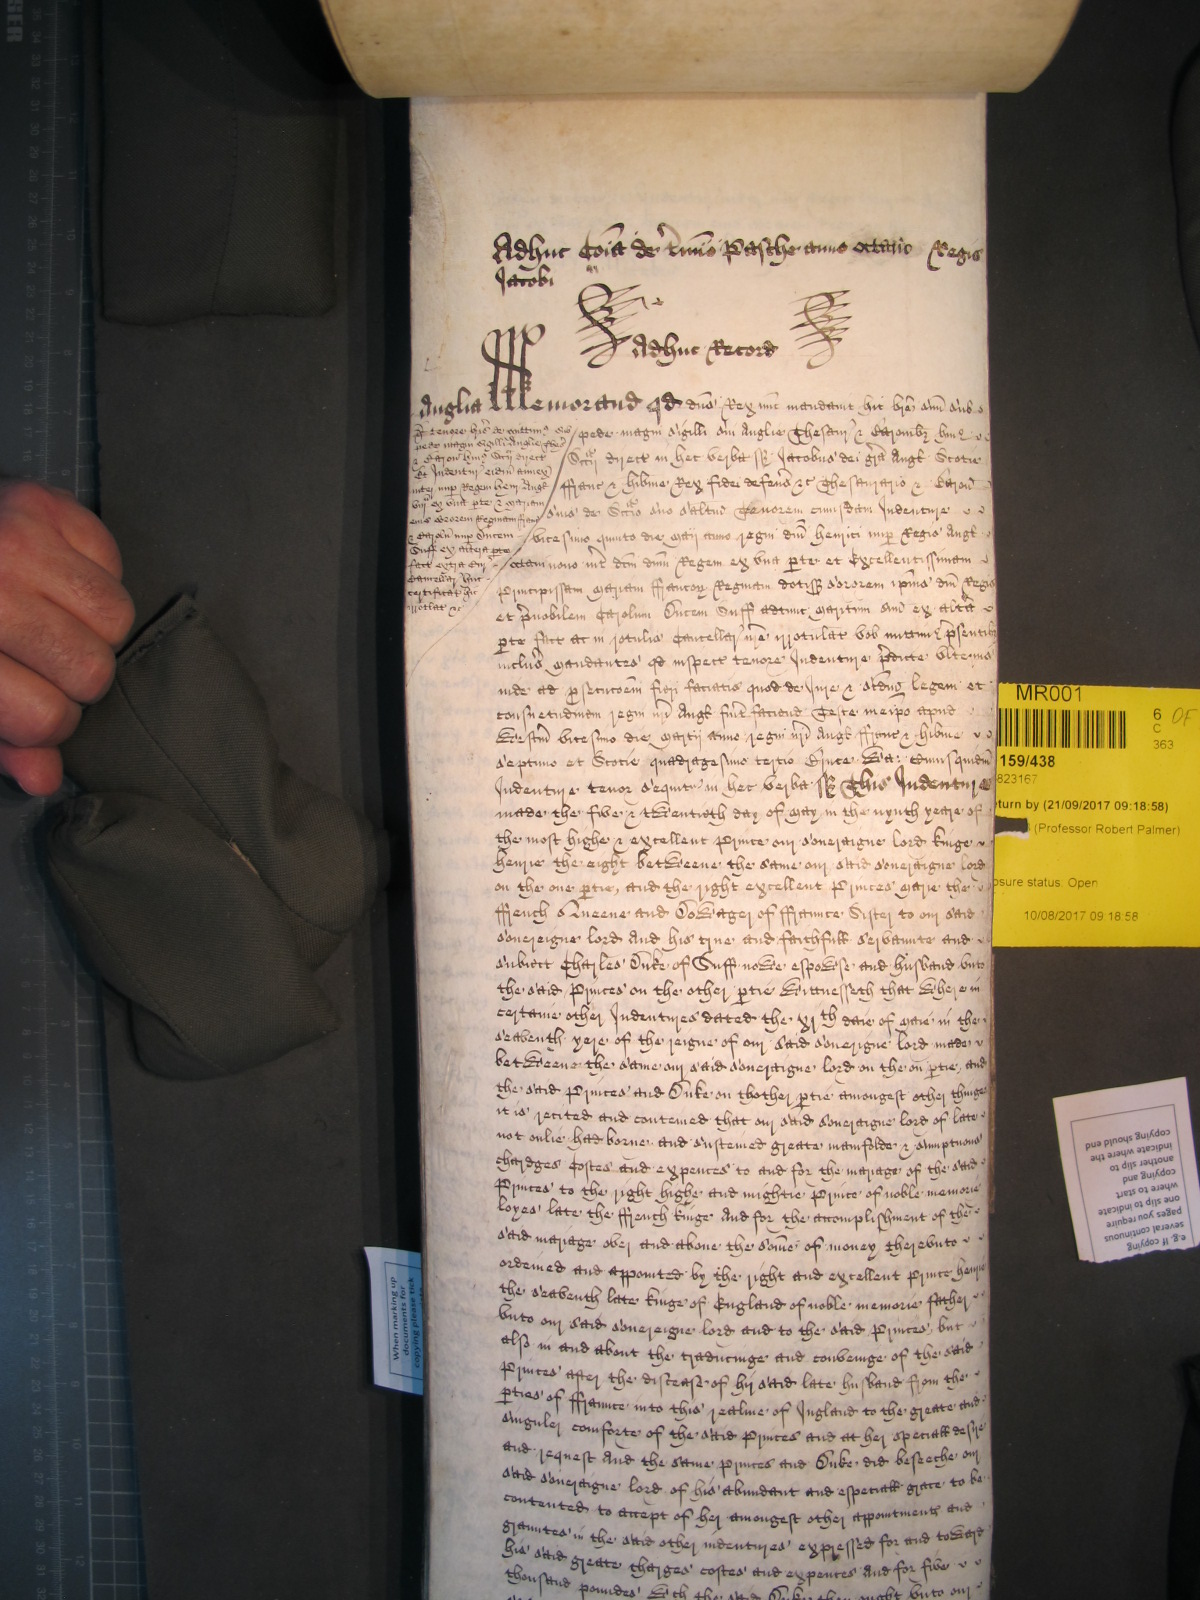 Adhuc Co͠ia de t͠mio Pasche anno octauo Regis
Jacobi
Adhuc Record
Anglia Memorand qd dns Rex nunc mandauit hic bre suu sub
pede magni sigilli sui Anglie Thesaur & Baronibz huius
Sccii direct in hec verba ss Jacobus dei gra Angl Scotie
ffranc & hibnie Rex fidei defensor &c Thesaurario & Baron
suis de Sccio suo saltm Tenorem cuiusdam Indenture
vicesimo quinto die Maij anno regni dni henrici nup Regis Angl
octaui nono int dcm dnm Regem ex vna pte et Excellentissimam
Principissam Mariam ffrancor Reginam dotissz sororem ipius dni Regis
et pnobilem Carolum Ducem Suff adtunc maritum suu ex altera
pte fact ac in rotulis Cancellar nre irrotulat vob mittim psentibz
inclus Mandantes qd inspect tenore Indenture pdicte vlterius
inde ad psecucoem fieri faciatis quod de Jure & scdm legem et
consuetudinem regni nri Angl fuit faciend Teste meipo apud
Westm vicesimo die Martij anno regni nri Angl ffranc & hibnie
septimo et Scotie quadragesimo tertio
Indenture tenor sequitr in hec verba ss This Indenture
made the five & twentieth day of May in the nynth yeare of
the most highe & excellent Prince our soueraigne lord kinge
henrie the eight betweene the same our said soueraigne lord
on the one ptie, and the right excellent Princes Marie the
ffrench Queene and Dowager of ffraunce Sister to our said
soueraigne lord And his true and faithfull servaunte and
subiect Charles Duke of Suff nowe espowse and husband vnto
the said Princes on the other ptie Wittnesseth that where in
certaine other Indentures dated the xjth daie of Maie in the
seaventh yere of the reigne of our said soueraigne lord made
betweene the same our said soueraigne lord on the on ptie, and
the said Princes and Duke on thother ptie amongest other thinges
it is recited and conteined that our said soueraigne lord of late
not onlie had borne and susteined greate manifolde & sumptuous
chardges costes and expences to and for the mariage of the said
Princes to the right highe and mightie Prince of noble memorie
loyes late the ffrench kinge And for the accomplishment of the
said mariage over and above the some of money therevnto
ordeined and appointed by the right and excellent Prince henrie
the seaventh late kinge of England of noble memorie father
vnto our said soueraigne lord and to the said Princes, but
also in and about the traducinge and conveinge of the said
Princes after the discease of hir said late husband from the
pties of ffraunce into this realme of Ingland to the greate and
singuler comforte of the said Princes and at her speciall desire
and request And the same Princes and Duke did beseeche our
said soueraigne lord of his abundant and especiall grace to be
contented to accept of her amongest other appointments and
grauntes in the said other indentures expressed for and toward
his said greate charges costes and expences And for five
thousand poundes wch the said Duke then ought vnto our
MR001
6
C
363
OF
159/438
823167
eturn by (21/09/2017 09:18:58)
(Professor Robert Palmer)
osure status: Open
10/08/2017 09:18:58
When marking up
documents for
copying please tick
e.g. If copying
several continuous
pages you require
one slip to indicate
where to start
copying and
another slip to
indicate where the
copying should end